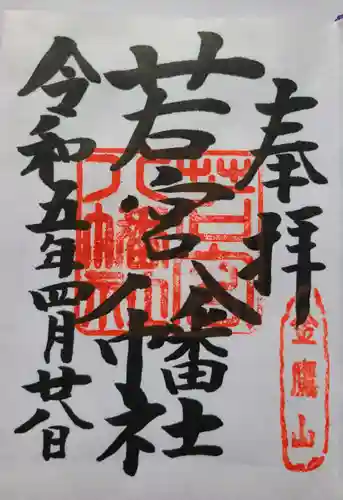 奉拝
若宮八幡社
令和五年四月廿八日
金鷹山